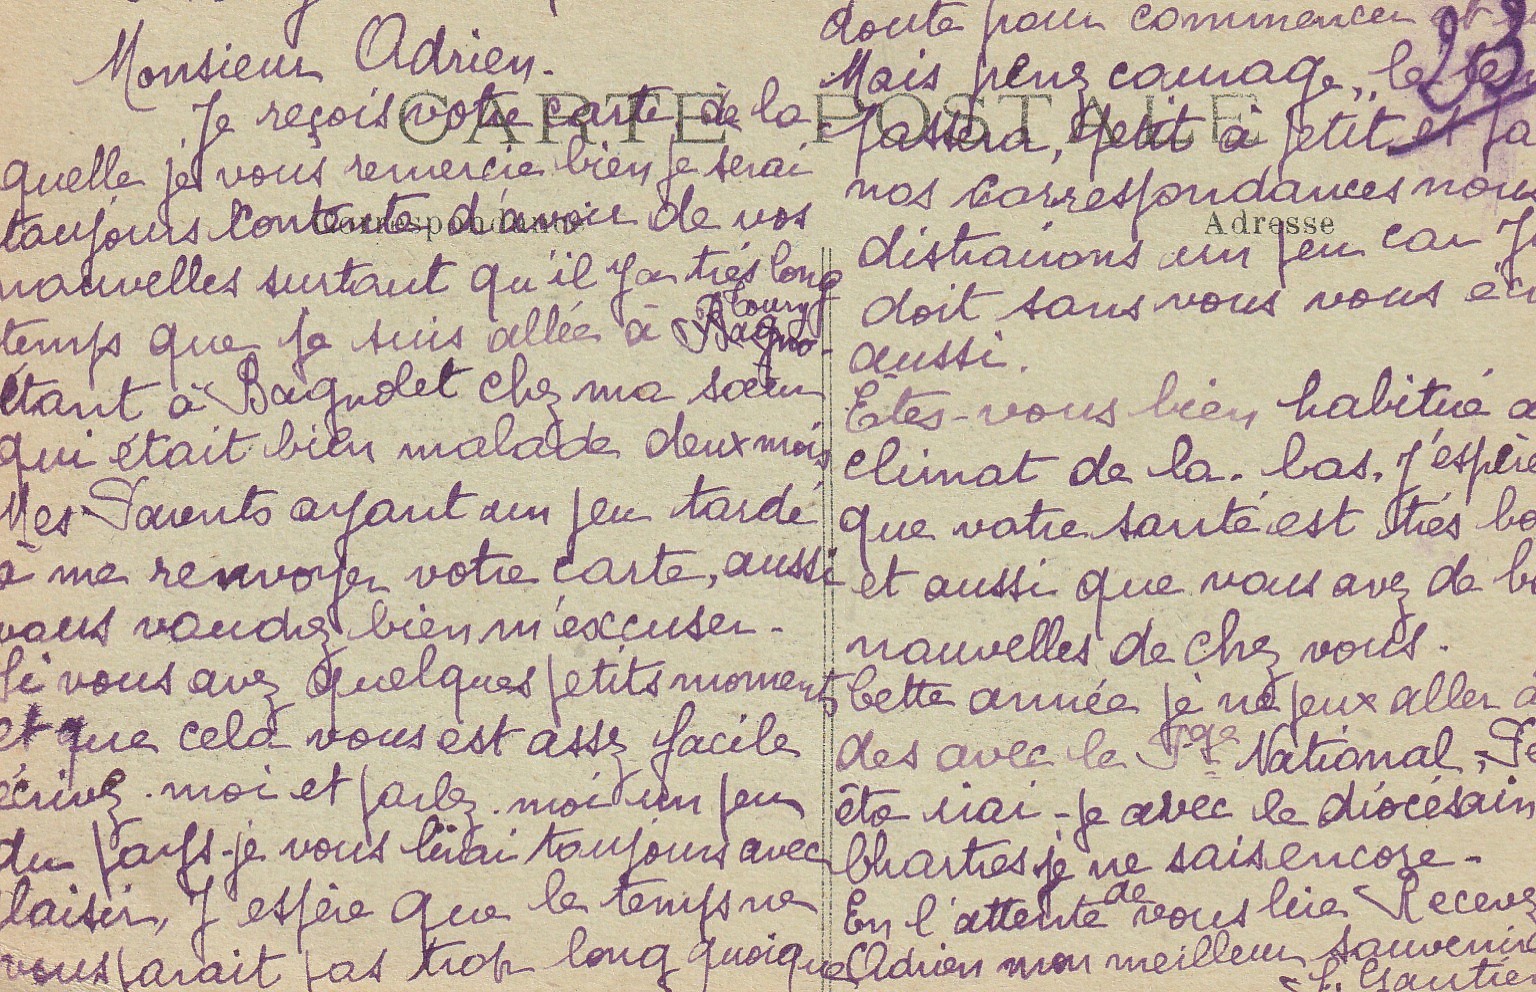 Monsieur Adrien.
Je reçois votre carte de la
quelle je vous remercie bien je serai
toujours contente d'avoir de vos
nouvelles surtout qu'il y a très long
temps que je suis allée à Bourg
étant à Bagnolet chez ma sœur
qui était bien malade deux mois
Mes Parents ayant un peu tardé
à me renvoyer votre carte, aussi
vous voudrez bien m'excuser.
Si vous avez quelques petits moments
et que cela vous est assez facile
écrivez-moi et parlez-moi un peu
du pays. je vous lirai toujours avec
plaisir, J'espère que le temps ne
vous parait pas trop long quoique
doute pour commencer
Mais prenez courage, le
passera, petit à petit et
nos correspondances nous
distrairons un peu car
doit sans vous vous
aussi.
Êtes-vous bien habitué
climat de la-bas, j'espère
que votre santé est très
et aussi que vous avez de
nouvelles de chez vous.
Cette année je ne peux aller
des avec le Pge National,
été irai-je avec le diocésain
Chartres je ne sais encore.
En l'attente de vous lire Recevez
Adrien mon meilleur souvenir
Gautier
CARTE POSTALE
Correspondance
Adresse
23